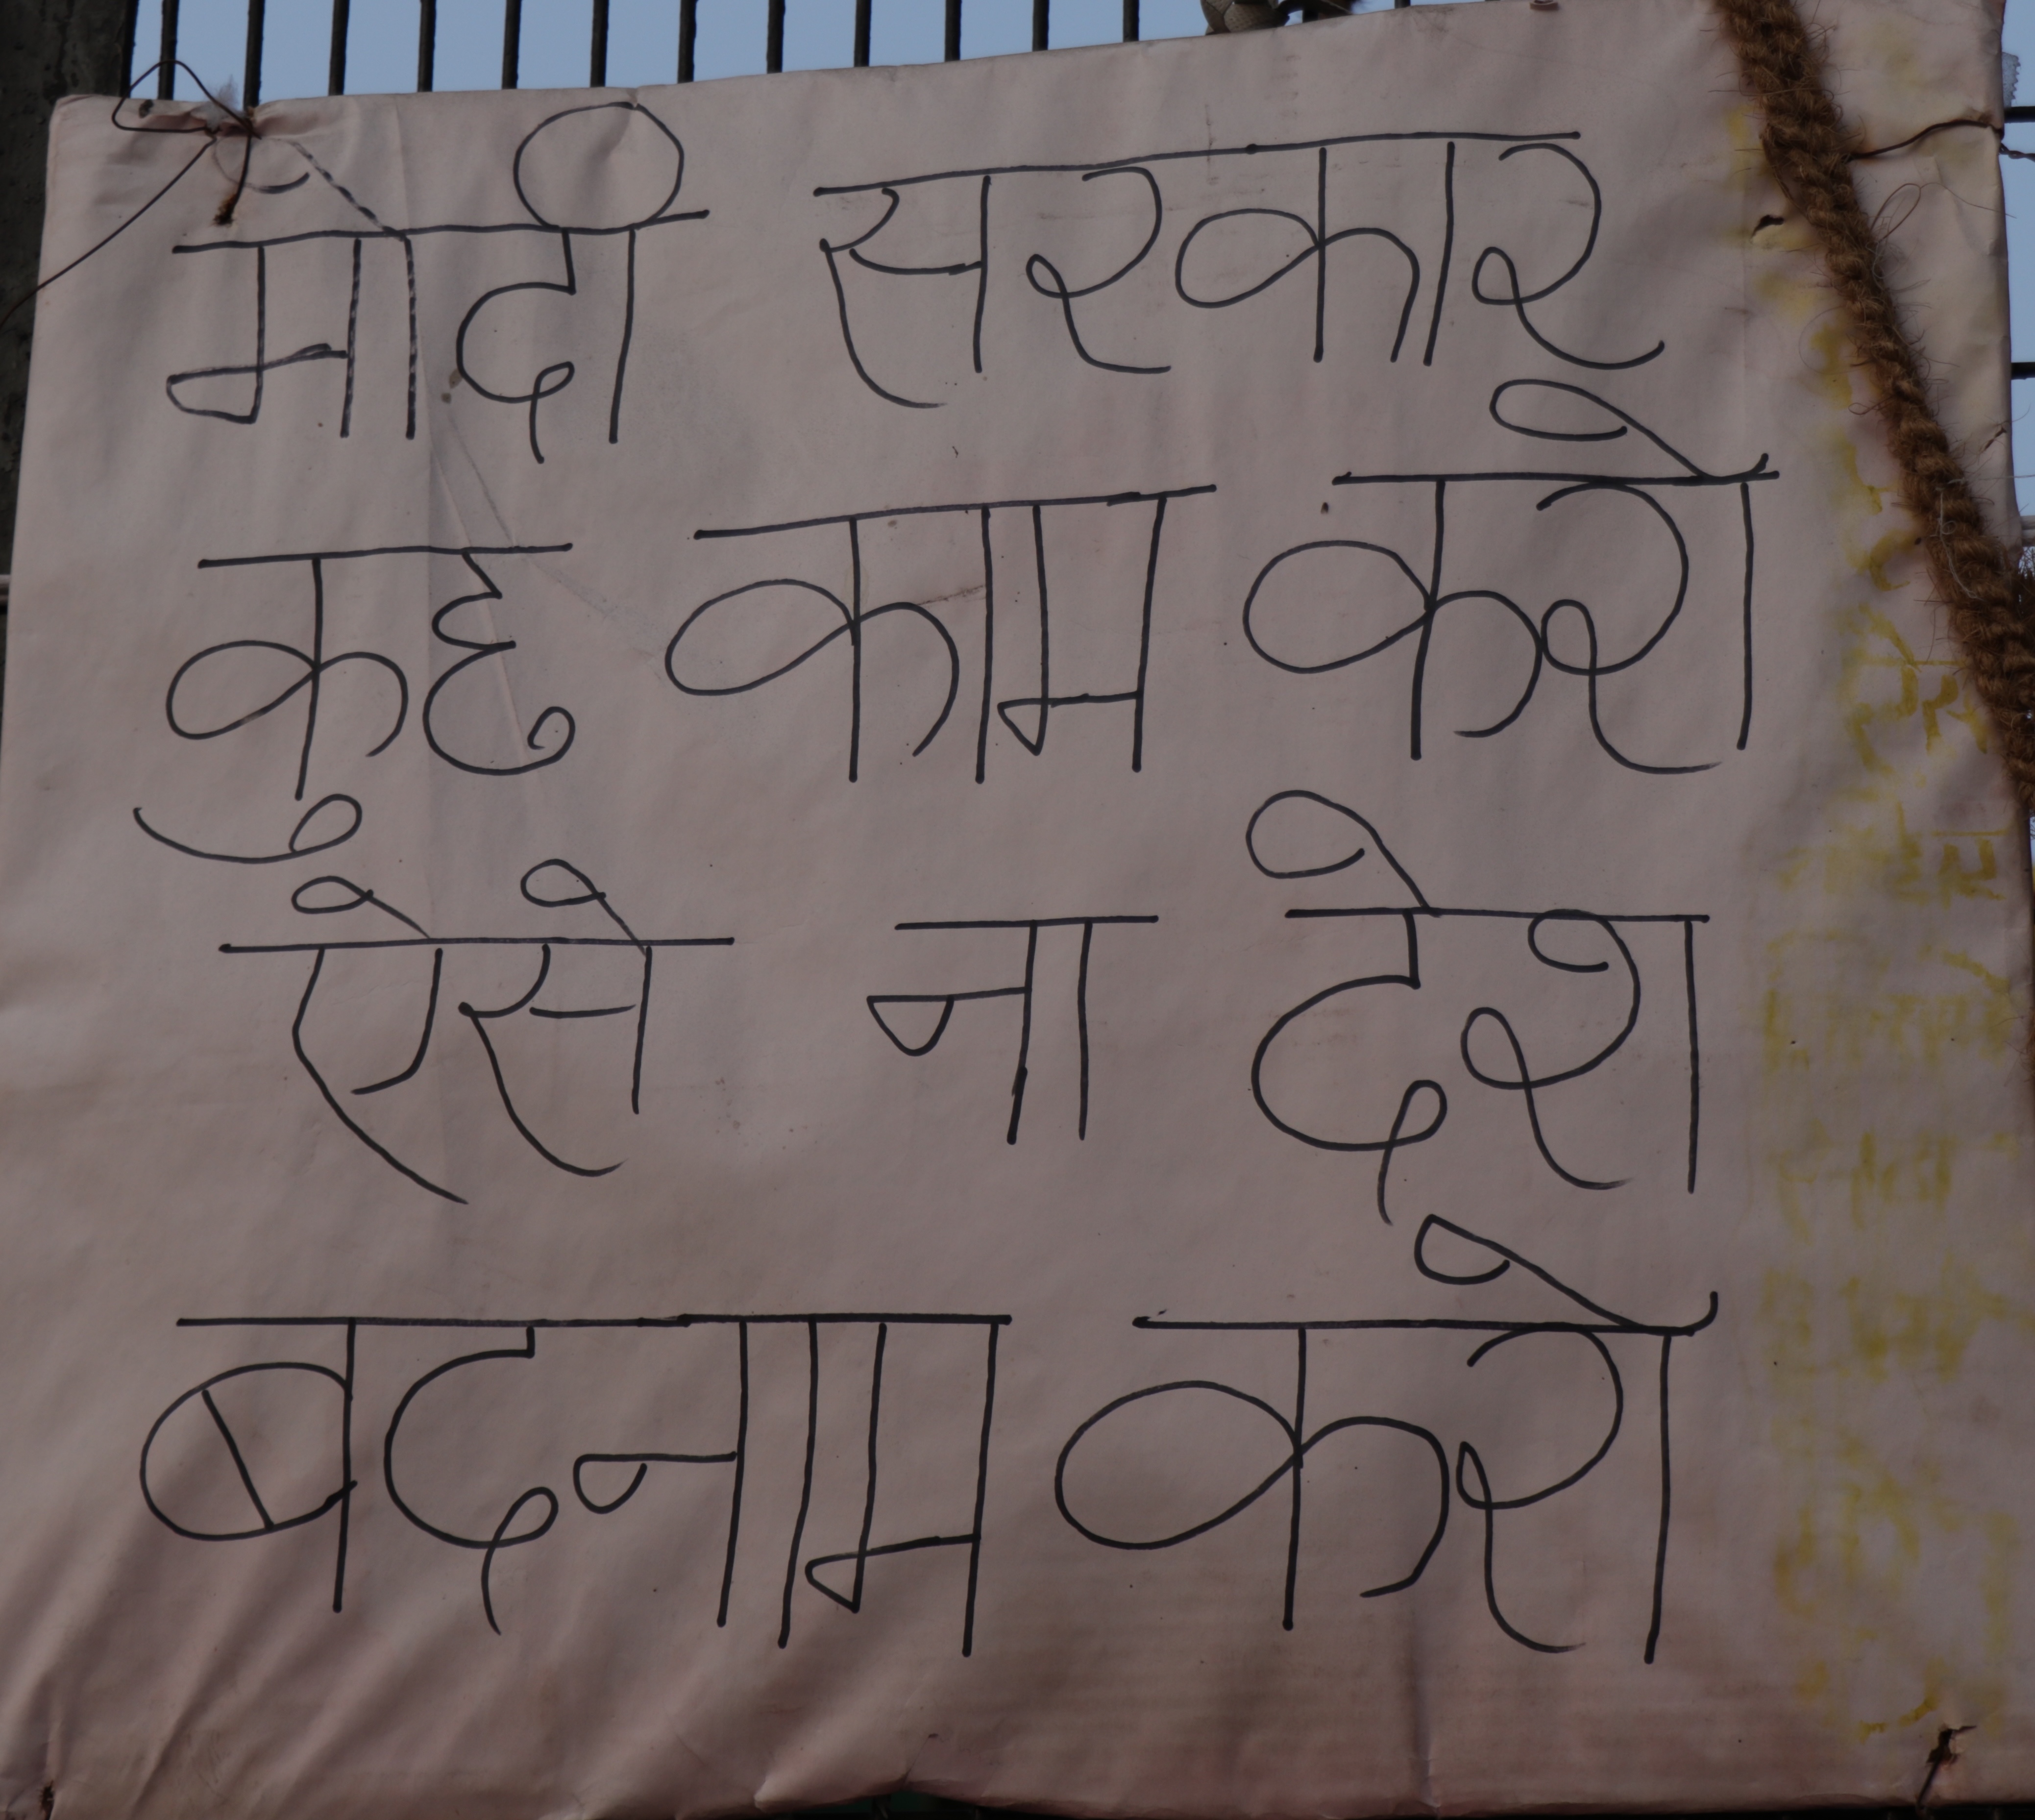 मोदी सरकार
कुह काम करो
ऐसे ना देश
बदनाम करो